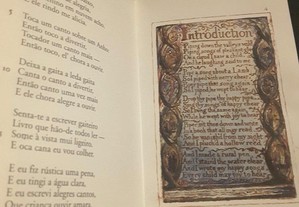 E ele rindo me dizia.
5 Toca um canto sobre um Anho.
Então toco a divertir.
Tocador um canto mais —
Então toco, chora a ouvir.
Deixa a gaita a leda gaita
10 Canta o canto a divertir,
Então canto uma vez mais
E ele chora alegre a ouvir.
Senta-te a escrever gaiteiro
Livro que hão-de todos ler —
15 à vista mui ligeiro,
E oca cana eu vou colher.
E eu fiz rústica uma pena,
E eu tingi a água clara,
E eu escrevi alegres cantos
Que criança ouvir amara.
Introduction
Piping down the valleys wild
Piping songs of pleasant glee
On a cloud I saw a child
And he laughing said to me
Pipe a song about a Lamb
So I piped with merry chear
Piper pipe that song again
So I piped he wept to hear
Drop thy pipe thy happy pipe
Sing thy songs of happy chear
So I sung the same again
While he wept with joy to hear
Piper sit thee down and write
In a book that all may read
So he vanish'd from my sight
And I pluck'd a hollow reed
And I made a rural pen
And I stain'd the water clear
And I wrote my happy songs
Every child may joy to hear